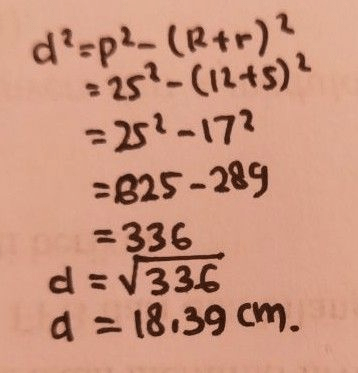 d²=p²-(R+r)²
=25²-(12+5)²
=25²-17²
=625-289
=336
d=√336
d=18.39 cm.